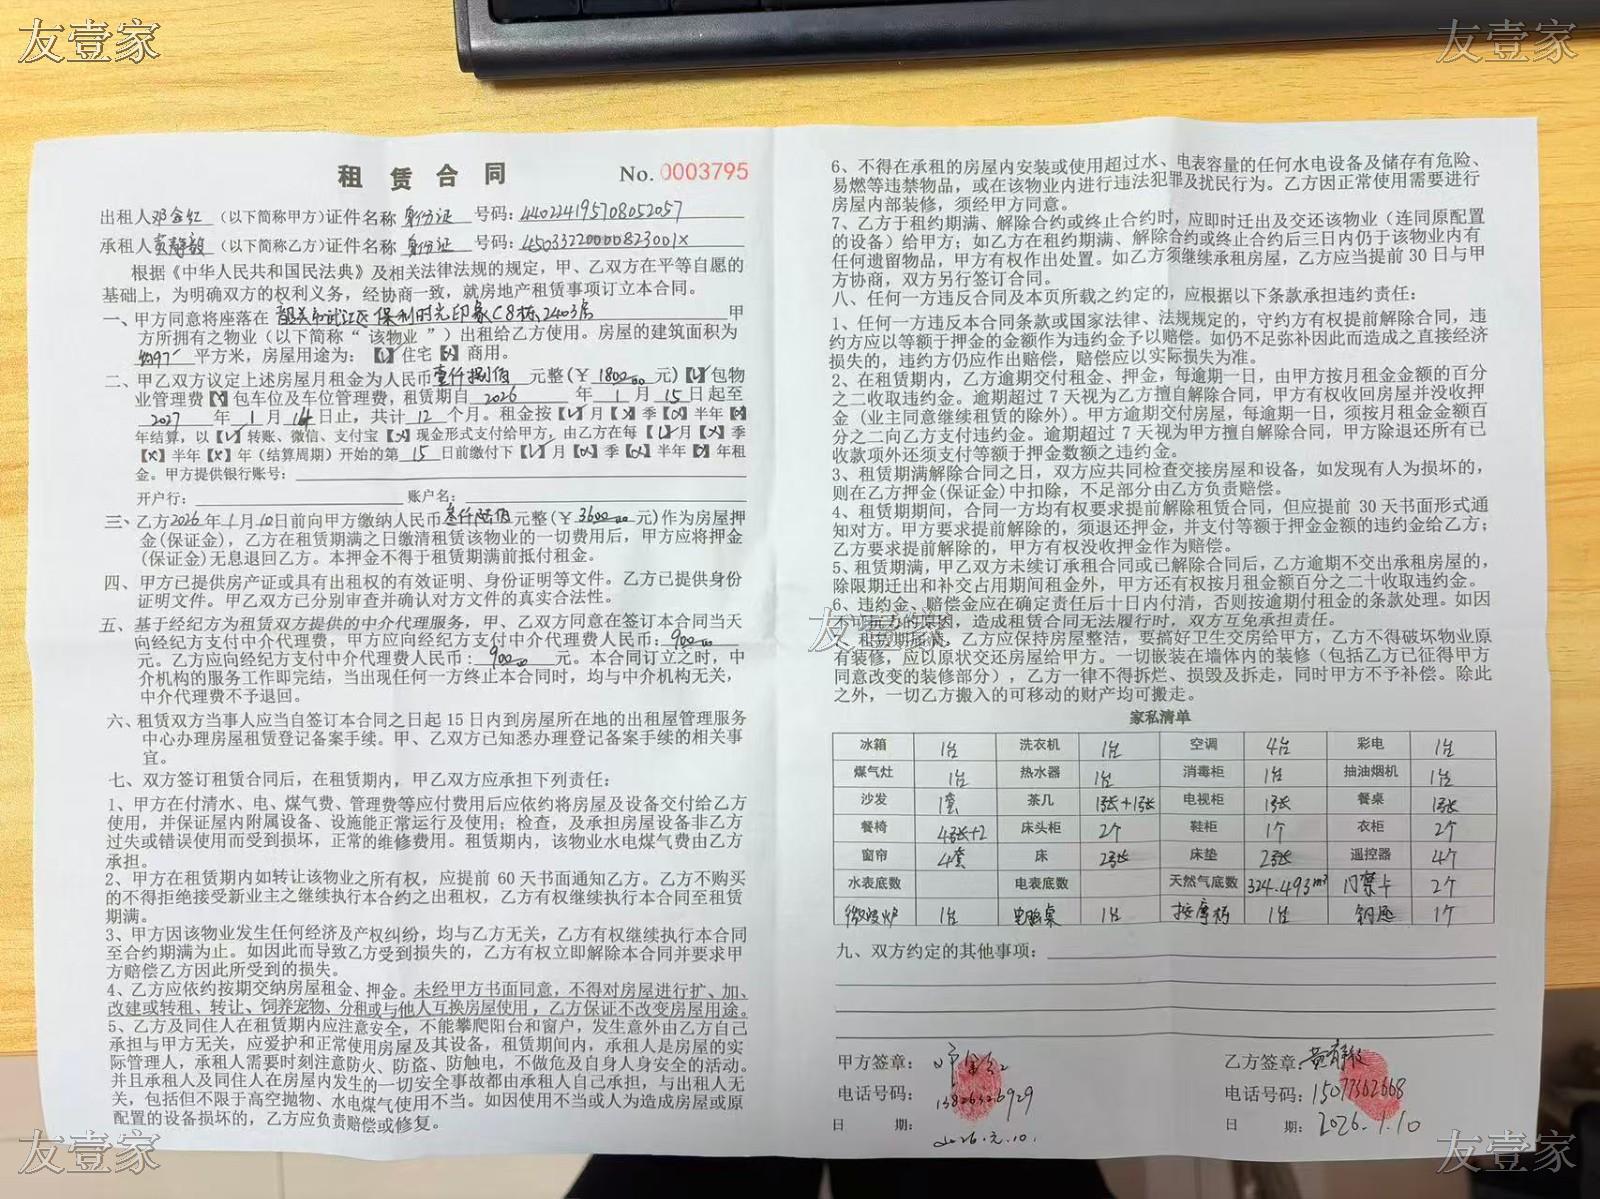 友壹家
友壹家
租赁合同 No.0003795
出租人邓金红（以下简称甲方）证件名称 身份证 号码：440224195708052057
承租人黄静毅（以下简称乙方）证件名称 身份证 号码：45033220000823001X
根据《中华人民共和国民法典》及相关法律法规的规定，甲、乙双方在平等自愿的
基础上，为明确双方的权利义务，经协商一致，就房地产租赁事项订立本合同。
一、甲方同意将座落在 韶关市武江区保利时光印象C8栋2403房 甲
方所拥有之物业（以下简称“ 该物业 ”）出租给乙方使用。房屋的建筑面积为
约97 平方米，房屋用途为：【✓】住宅【×】商用。
二、甲乙双方议定上述房屋月租金为人民币壹仟捌佰 元整(￥ 1800.00 元)【✓】包物
业管理费【×】包车位及车位管理费，租赁期自 2026 年 1 月 15 日起至
2027 年 1 月 14 日止，共计 12 个月。租金按【✓】月【×】季【×】半年【×】
年结算，以【✓】转账、微信、支付宝【×】现金形式支付给甲方，由乙方在每【✓】月【×】季
【×】半年【×】年（结算周期）开始的第 15 日前缴付下【✓】月【×】季【×】半年【×】年租
金。甲方提供银行账号：
开户行： 账户名：
三、乙方2026年1月10日前向甲方缴纳人民币 叁仟陆佰元整(￥3600.00元)作为房屋押
金(保证金)，乙方在租赁期满之日缴清租赁该物业的一切费用后，甲方应将押金
(保证金)无息退回乙方。本押金不得于租赁期满前抵付租金。
四、甲方已提供房产证或具有出租权的有效证明、身份证明等文件。乙方已提供身份
证明文件。甲乙双方已分别审查并确认对方文件的真实合法性。
五、基于经纪方为租赁双方提供的中介代理服务，甲、乙双方同意在签订本合同当天
向经纪方支付中介代理费，甲方应向经纪方支付中介代理费人民币：900.00
元。乙方应向经纪方支付中介代理费人民币：900.00 元。本合同订立之时，中
介机构的服务工作即完结，当出现任何一方终止本合同时，均与中介机构无关，
中介代理费不予退回。
六、租赁双方当事人应当自签订本合同之日起 15 日内到房屋所在地的出租屋管理服务
中心办理房屋租赁登记备案手续。甲、乙双方已知悉办理登记备案手续的相关事
宜。
七、双方签订租赁合同后，在租赁期内，甲乙双方应承担下列责任：
1、甲方在付清水、电、煤气费、管理费等应付费用后应依约将房屋及设备交付给乙方
使用，并保证屋内附属设备、设施能正常运行及使用；检查，及承担房屋设备非乙方
过失或错误使用而受到损坏，正常的维修费用。租赁期内，该物业水电煤气费由乙方
承担。
2、甲方在租赁期内如转让该物业之所有权，应提前 60 天书面通知乙方。乙方不购买
的不得拒绝接受新业主之继续执行本合约之出租权，乙方有权继续执行本合同至租赁
期满。
3、甲方因该物业发生任何经济及产权纠纷，均与乙方无关，乙方有权继续执行本合同
至合约期满为止。如因此而导致乙方受到损失的，乙方有权立即解除本合同并要求甲
方赔偿乙方因此所受到的损失。
4、乙方应依约按期交纳房屋租金、押金。未经甲方书面同意，不得对房屋进行扩、加、
改建或转租、转让、饲养宠物、分租或与他人互换房屋使用，乙方保证不改变房屋用途。
5、乙方及同住人在租赁期内应注意安全，不能攀爬阳台和窗户，发生意外由乙方自己
承担与甲方无关，应爱护和正常使用房屋及其设备，租赁期间内，承租人是房屋的实
际管理人，承租人需要时刻注意防火、防盗、防触电，不做危及自身人身安全的活动。
并且承租人及同住人在房屋内发生的一切安全事故都由承租人自己承担，与出租人无
关，包括但不限于高空抛物、水电煤气使用不当。如因使用不当或人为造成房屋或原
配置的设备损坏的，乙方应负责赔偿或修复。
6、不得在承租的房屋内安装或使用超过水、电表容量的任何水电设备及储存有危险、
易燃等违禁物品，或在该物业内进行违法犯罪及扰民行为。乙方因正常使用需要进行
房屋内部装修，须经甲方同意。
7、乙方于租约期满、解除合约或终止合约时，应即时迁出及交还该物业（连同原配置
的设备）给甲方；如乙方在租约期满、解除合约或终止合约后三日内仍于该物业内有
任何遗留物品，甲方有权作出处置。如乙方须继续承租房屋，乙方应当提前 30 日与甲
方协商，双方另行签订合同。
八、任何一方违反合同及本页所载之约定的，应根据以下条款承担违约责任：
1、任何一方违反本合同条款或国家法律、法规规定的，守约方有权提前解除合同，违
约方应以等额于押金的金额作为违约金予以赔偿。如仍不足弥补因此而造成之直接经济
损失的，违约方仍应作出赔偿，赔偿应以实际损失为准。
2、在租赁期内，乙方逾期交付租金、押金，每逾期一日，由甲方按月租金金额的百分
之二收取违约金。逾期超过 7 天视为乙方擅自解除合同，甲方有权收回房屋并没收押
金（业主同意继续租赁的除外）。甲方逾期交付房屋，每逾期一日，须按月租金金额百
分之二向乙方支付违约金。逾期超过 7 天视为甲方擅自解除合同，甲方除退还所有已
收款项外还须支付等额于押金数额之违约金。
3、租赁期满解除合同之日，双方应共同检查交接房屋和设备，如发现有人为损坏的，
则在乙方押金(保证金)中扣除，不足部分由乙方负责赔偿。
4、租赁期期间，合同一方均有权要求提前解除租赁合同，但应提前 30 天书面形式通
知对方。甲方要求提前解除的，须退还押金，并支付等额于押金金额的违约金给乙方；
乙方要求提前解除的，甲方有权没收押金作为赔偿。
5、租赁期满，甲乙双方未续订承租合同或已解除合同后，乙方逾期不交出承租房屋的，
除限期迁出和补交占用期间租金外，甲方还有权按月租金额百分之二十收取违约金。
6、违约金、赔偿金应在确定责任后十日内付清，否则按逾期付租金的条款处理。如因
不可抗力的原因，造成租赁合同无法履行时，双方互免承担责任。
友壹家
租赁期届满，乙方应保持房屋整洁，要搞好卫生交房给甲方，乙方不得破坏物业原
有装修，应以原状交还房屋给甲方。一切嵌装在墙体内的装修（包括乙方已征得甲方
同意改变的装修部分），乙方一律不得拆烂、损毁及拆走，同时甲方不予补偿。除此
之外，一切乙方搬入的可移动的财产均可搬走。
家私清单
冰箱 1台 洗衣机 1台 空调 4台 彩电 1台
煤气灶 1台 热水器 1台 消毒柜 1台 抽油烟机 1台
沙发 1套 茶几 1张+1张 电视柜 1张 餐桌 1张
餐椅 4张+2 床头柜 2个 鞋柜 1个 衣柜 2个
窗帘 4套 床 2张 床垫 2张 遥控器 4个
水表底数 电表底数 天然气底数 324.493m³ 门禁卡 2个
微波炉 1台 电脑桌 1台 按摩椅 1台 钥匙 1个
九、双方约定的其他事项：
甲方签章：邓金红 乙方签章：黄静毅
电话号码： 电话号码：15077362668
日 期：2026.元.10. 日 期：2026.1.10
友壹家
友壹家